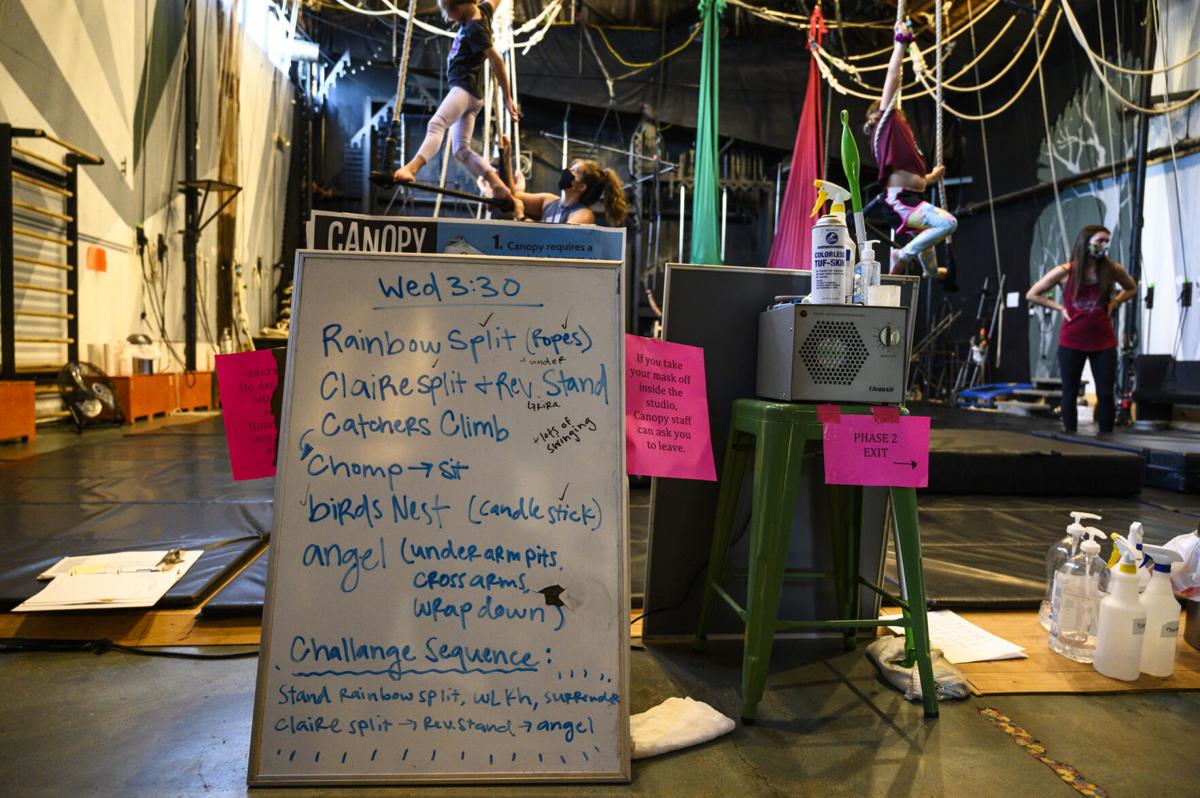 CANOPY
1. Canopy requires a
Wed 3:30
Rainbow Split (Ropes)
+ under
Claire split + Rev. Stand
Catchers Climb
+ lots of
swinging
Chomp → sit
birds Nest (candlestick)
angel (under arm pits,
cross arms,
wrap down)
Challange Sequence:
Stand Rainbow split, WLKh, surrender
Claire split → Rev. Stand → angel
If you take
your mask off
inside the
studio,
Canopy staff
can ask you
to leave.
COLORLESS
TUF-SKIN
CleanAir
PHASE 2
EXIT
→